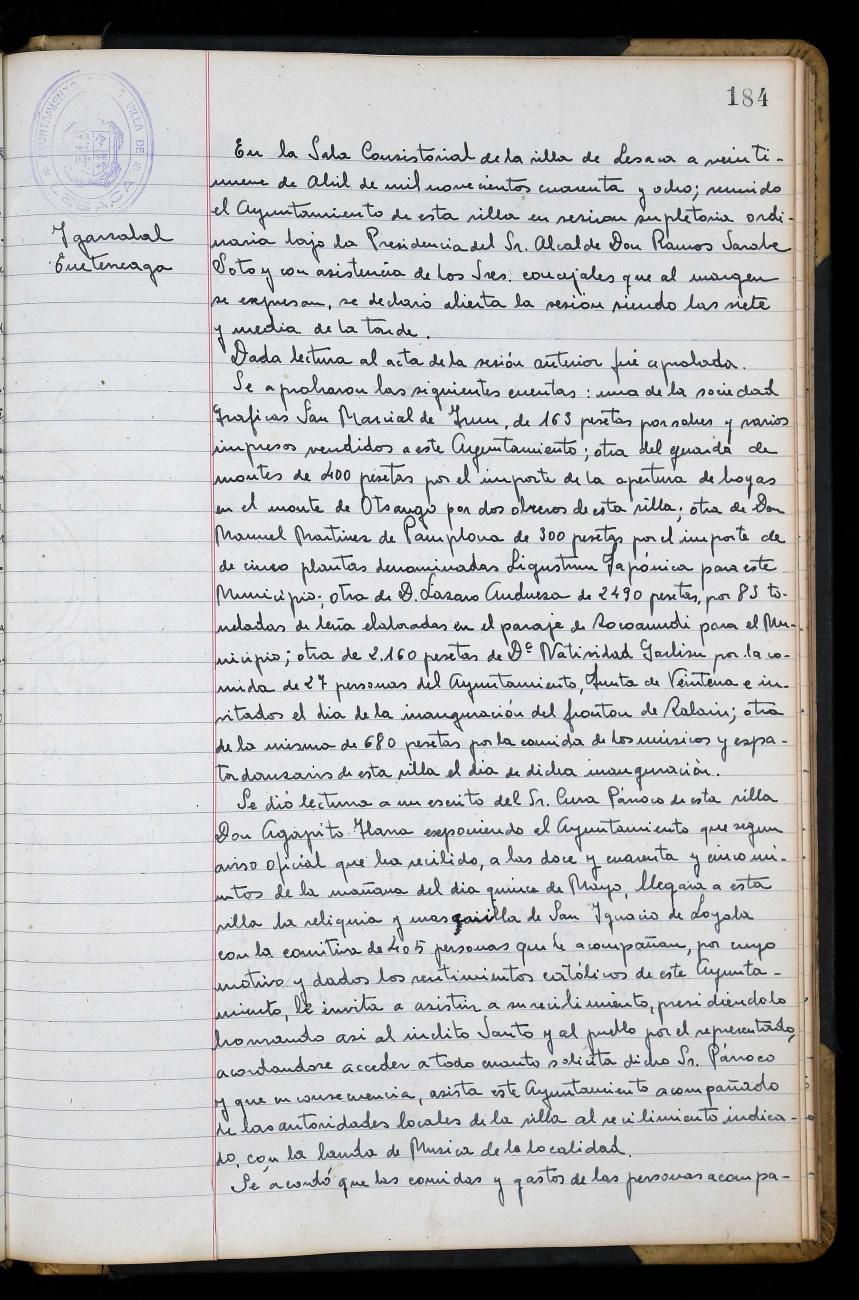 184
AYUNTAMIENTO VILLA DE LESACA
Ygarzabal
En la Sala Consistorial de la villa de Lesaca a veinti-
nueve de Abril de mil novecientos cuarenta y ocho; reunido
el Ayuntamiento de esta villa en sesión supletoria ordi-
naria bajo la Presidencia del Sr. Alcalde Don Ramos Sarobe
Soto y con asistencia de los Sres. concejales que al margen
se expresan, se declaró abierta la sesión siendo las siete
y media de la tarde.
Dada lectura al acta de la sesión anterior fué aprobada.
Se aprobaron las siguientes cuentas: una de la sociedad
Graficas San Marcial de Irun, de 163 pesetas por sobres y varios
impresos vendidos a este Ayuntamiento; otra del guarda de
montes de 400 pesetas por el importe de la apertura de hoyas
en el monte de Otsango por dos obreros de esta villa; otra de Don
Manuel Martinez de Pamplona de 300 pesetas por el importe de
de cinco plantas denominadas Ligustrum Japónica para este
Municipio; otra de D. Lazaro Andueza de 2490 pesetas, por 83 to-
neladas de leña elaboradas en el paraje de para el Mu-
nicipio; otra de 2.160 pesetas de Dª Natividad por la co-
mida de 27 personas del Ayuntamiento, Junta de Veintena e in-
vitados el dia de la inauguración del fronton de; otra
de la misma de 680 pesetas por la comida de los músicos y espa-
tadanzaris de esta villa el dia de dicha inauguración.
Se dió lectura a un escrito del Sr. Cura Párroco de esta villa
Don Agapito exponiendo el Ayuntamiento que segun
aviso oficial que ha recibido, a las doce y cuarenta y cinco mi-
nutos de la mañana del dia quince de Mayo, llegara a esta
villa la reliquia y mascarilla de San Ignacio de Loyola
con la comitiva de 405 personas que le acompañan, por cuyo
motivo y dados los sentimientos católicos de este Ayunta-
miento, le invita a asistir a su recibimiento, presidiendolo
honrando asi al inclito Santo y al pueblo por el representado,
acordandose acceder a todo cuanto solicita dicho Sr. Párroco
y que en consecuencia, asista este Ayuntamiento acompañado
de las autoridades locales de la villa al recibimiento indica-
do, con la banda de Musica de la localidad.
Se acordó que las comidas y gastos de las personas acompa-